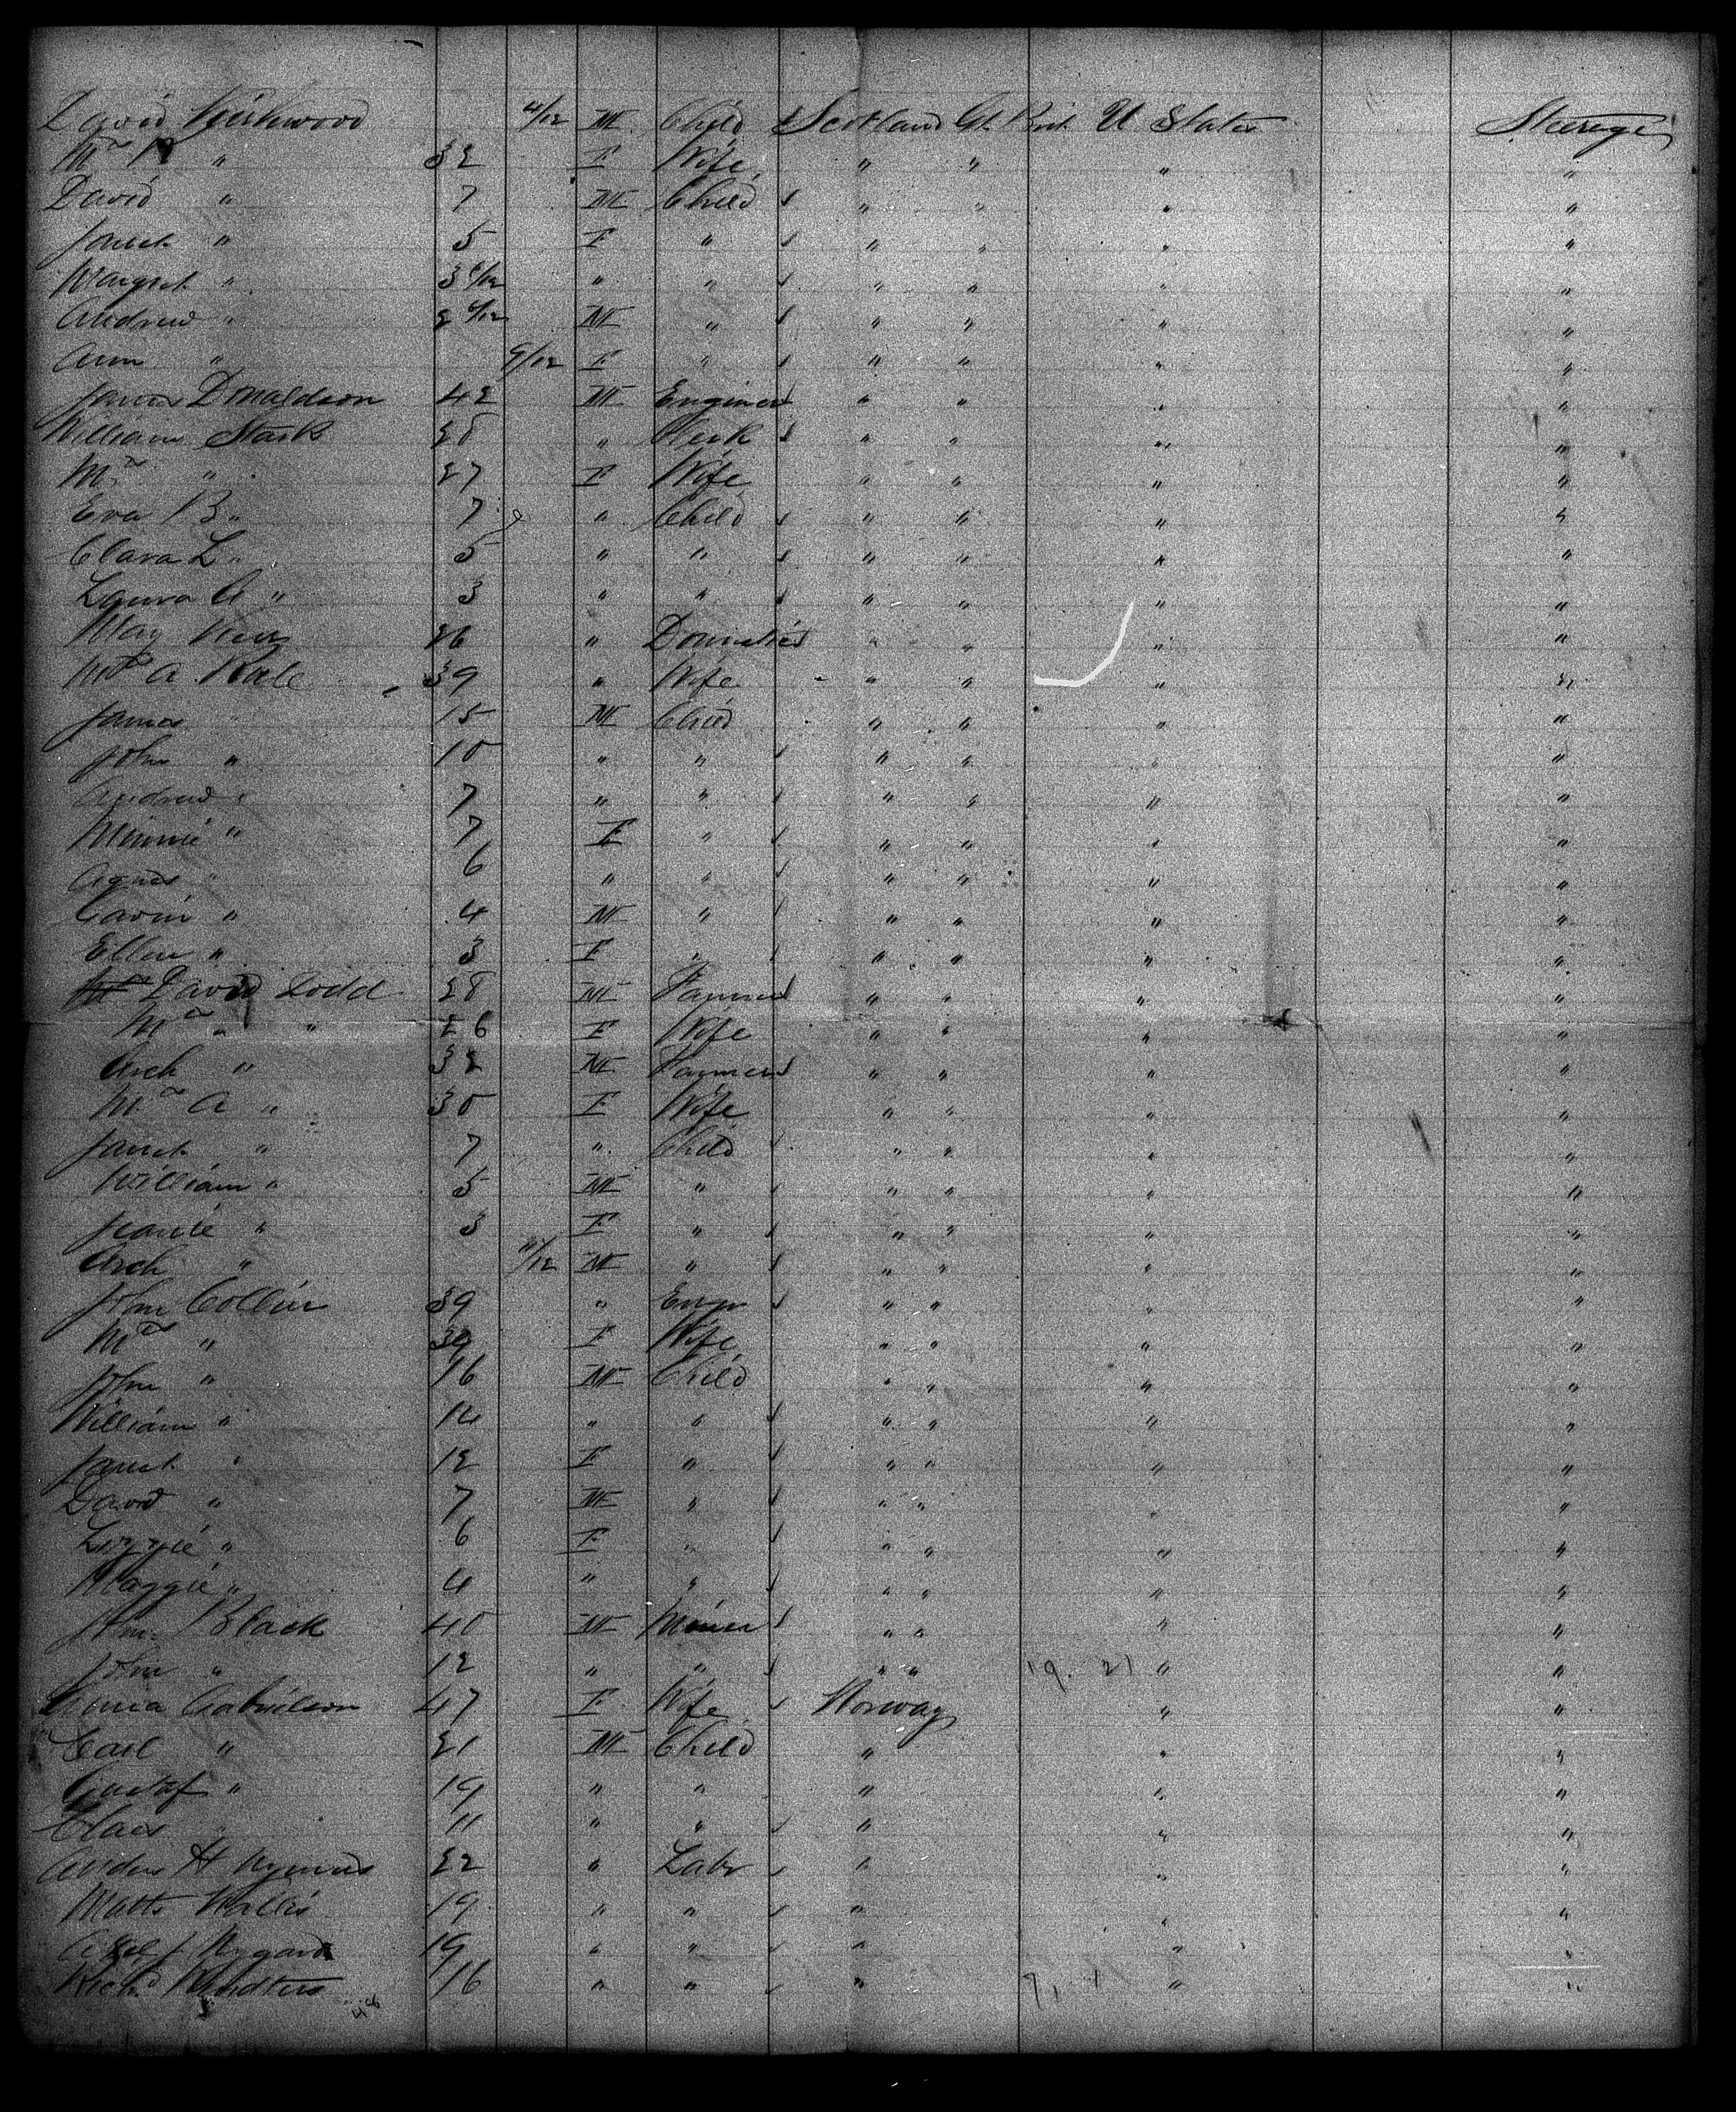 David Kirkwood 4/12 M Child Scotland Gt. Brit. U States Steerage
Mrs " 32 F Wife " " " "
David " 7 M Child " " " "
Janet " 5 F " " " " "
Margret " 3 6/12 " " " " " "
Andrew " 2 6/12 M " " " " "
Ann " 9/12 F " " " " "
James Donaldson 42 M Engineer " " " "
William Stark 28 " Clerk " " " "
Mrs " 27 F Wife " " " "
Eva B " 7 " Child " " " "
Clara L " 5 " " " " " "
Laura A " 3 " " " " " "
May 26 " Domestic " " " "
Mrs A. 39 " Wife " " " "
James " 15 M Child " " " "
John " 10 " " " " " "
Andrew " 7 " " " " " "
Minnie " 7 F " " " " "
Agnes " 6 " " " " " "
Gavin " 4 M " " " " "
Ellen " 3 F " " " " "
David Dodd 28 M Farmer " " " "
Mrs " " 26 F Wife " " " "
Arch " 32 M Farmer " " " "
Mrs A " 30 F Wife " " " "
Janet " 7 " Child " " " "
William " 5 M " " " " "
Jeanie " 3 F " " " " "
Arch " 11/12 M " " " " "
John Collin 39 " Engr " " " "
Mrs " 39 F Wife " " " "
John " 16 M Child " " " "
William " 14 " " " " " "
Janet " 12 F " " " " "
David " 7 M " " " " "
Lizzie " 6 F " " " " "
Maggie " 4 " " " " " "
Black 40 M Miner " " " "
John " 12 " " " " 19. 21 " "
Gabrielson 47 F Wife Norway " "
Carl " 21 M Child " " "
Gustaf " 19 " " " " "
Claes " 11 " " " " "
H 22 " Labr " " "
Matts 19 " " " " "
Axel J Nygard 19 " " " " "
16 " " " " "
48